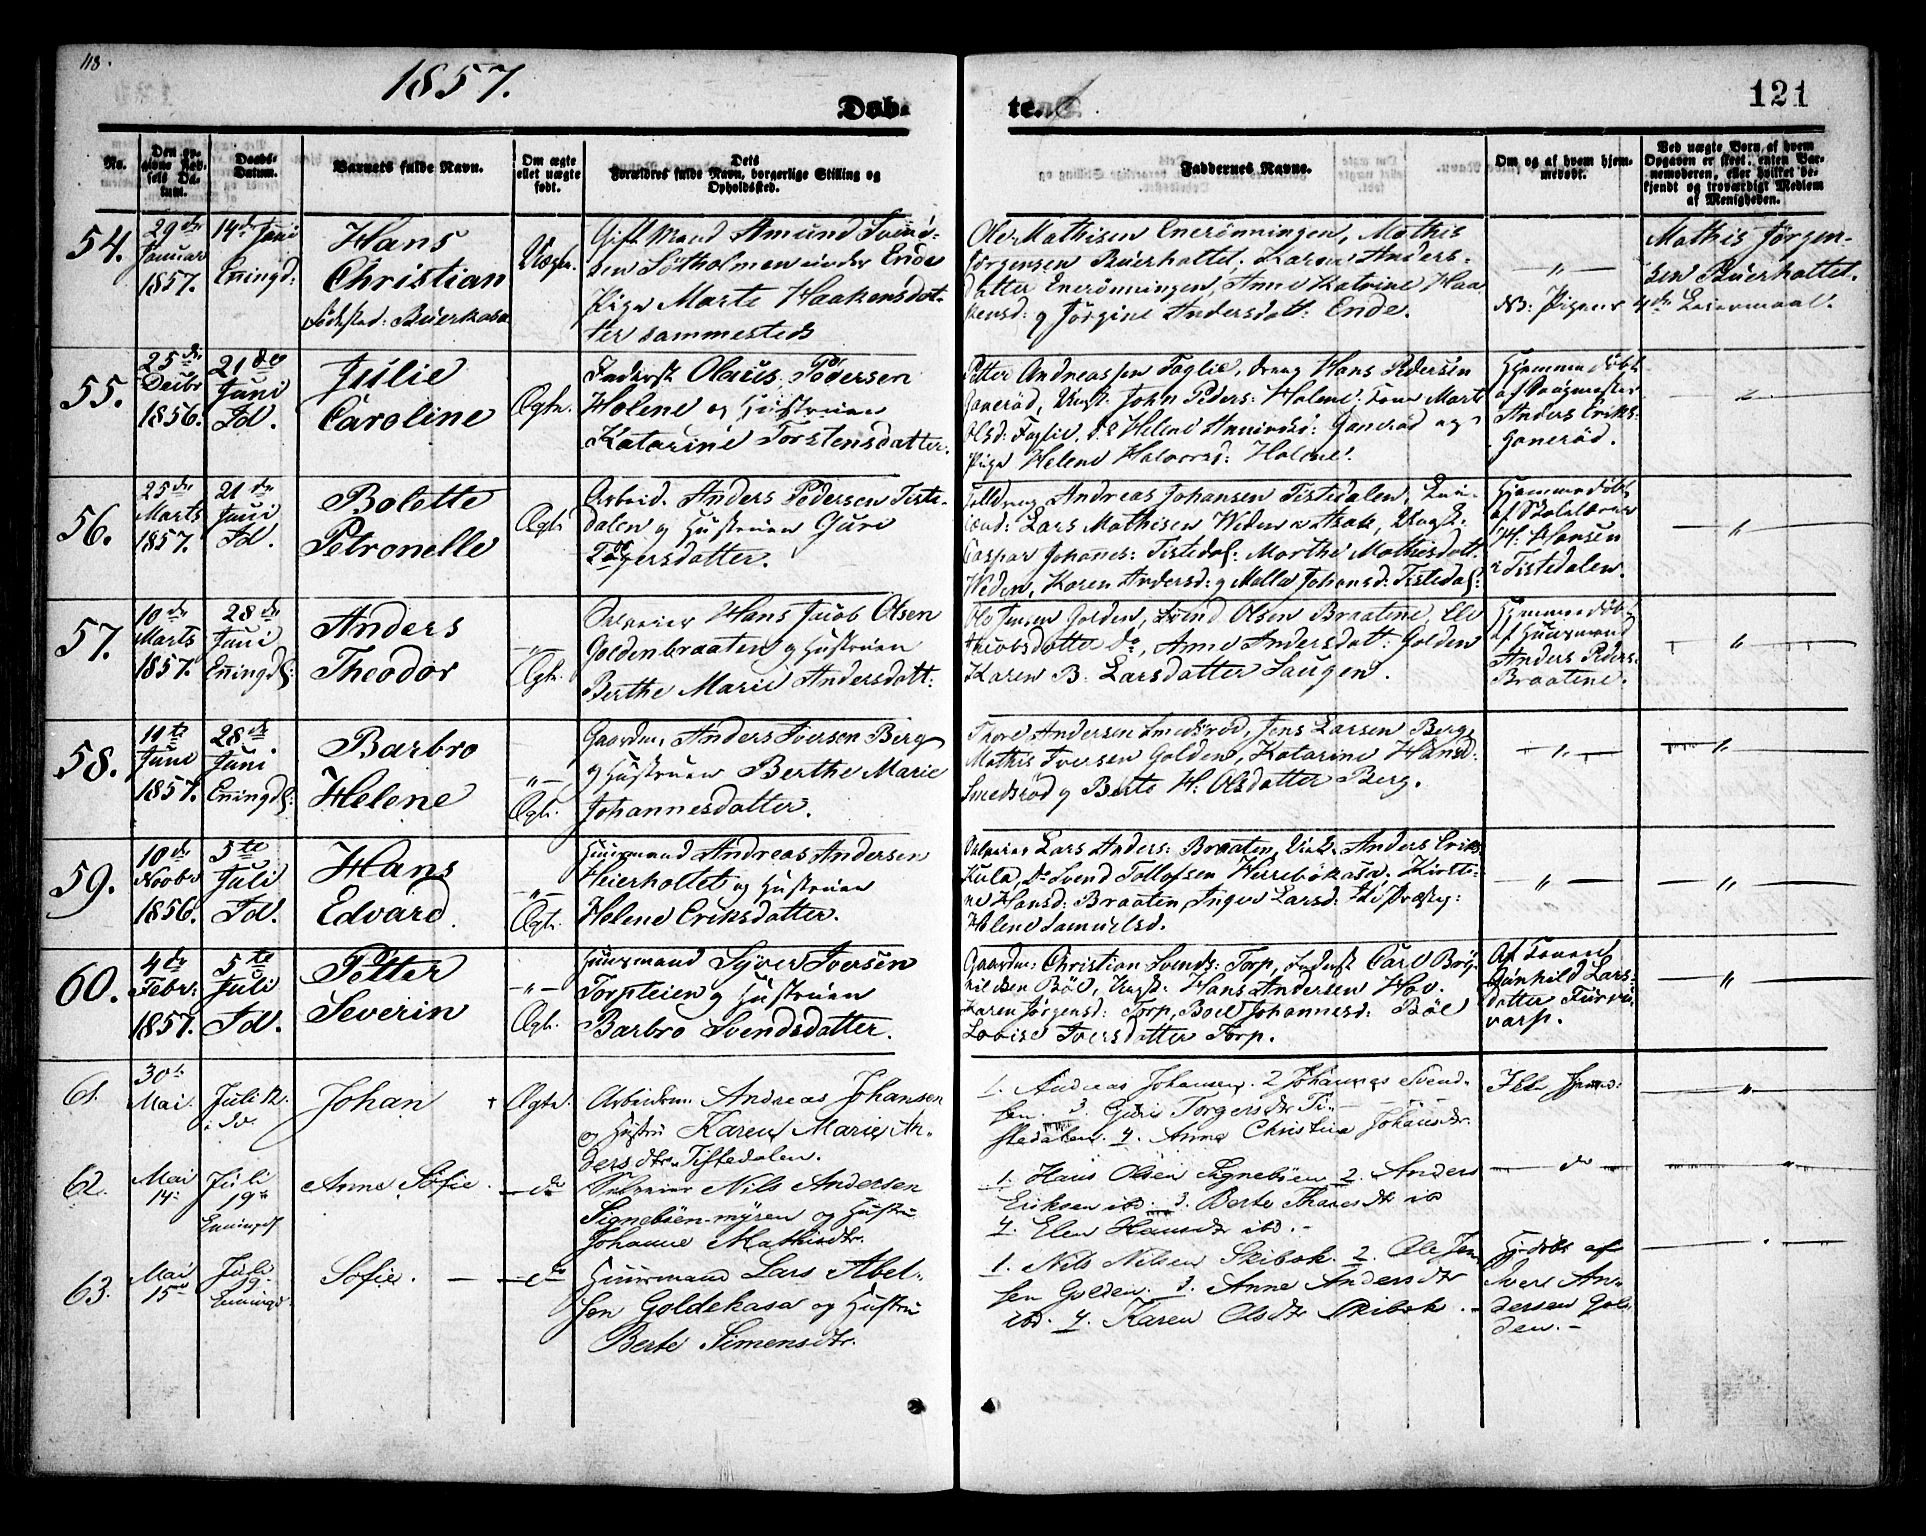 118.
1857.
Døb-
te.
121
No.
Den opgivne Fødsels Datum.
Daabs-Datum.
Barnets fulde Navn.
Om ægte eller uægte født.
Dets Forældres fulde Navn, borgerlige Stilling og Opholdssted.
Faddernes Navne.
Om og af hvem hjemmedøbt.
Ved uægte Børn, af hvem Opgaven er skeet, enten Barnemoderen, eller hvilket bekjendt og troværdigt Medlem af Menigheden.
54.
29de
Januar
1857.
14de Juni
Eningd:
Hans
Christian
Fødested: Buerkasa
Uægte.
Gift Mand Amund Svend-
sen Søtholmen under Ende
Pige Marte Haakensdat-
ter sammesteds
Ole Mathisen Enerønningen, Mathis
Jørgensen Buerholtet, Karen Anders-
datter Enerønningen, Anne Katrine Haa-
kensd: og Jørgine Andersdatt: Ende.
— " —
NB: Pigens 4de Leiermaal.
Mathis Jørgen-
sen Buerholtet.
55.
25de
Decbr
1856.
21de
Juni
Id.
Julie
Caroline
Ægte.
Inderst Olaus Pedersen
Holene og Hustruen
Katarine Torstensdatter.
Petter Andreassen Faglie, dreng Hans Pedersen
Ganerød, Ungk: John Peders: Holene. Kone Marte
Olsd: Faglie, do Helene Ganerød og
Pige Helene Halvorsd: Holene.
Hjemmedøbt
af
Anders Eriks:
Ganerød.
56.
25de
Marts
1857.
21de
Juni
Id.
Bolette
Petronelle
Ægte
Arbeid. Anders Pedersen Tiste-
dalen og Hustruen Guri
Torgersdatter.
Andreas Johansen Tistedalen,
Lars Mathisen Weden Ungk:
Caspar Johanes: Tistedal: Marthe Mathisdatt.
Weden, Karen Andersd: og Mallæ Johansd: Tistedal:
Hjemmedøbt
af Skolelærer
H: Hansen
i Tistedalen.
"
57.
10de
Marts
1857.
28de
Juni
Eningdl:
Anders
Theodor
— " —
Ægte.
Selveier Hans Jacob Olsen
Goldenbraaten og Hustruen
Berthe Marie Andersdatt:
Ole Jensen Golden, Svend Olsen Braatene, Eli
Jacobsdatter do, Anne Andersdatt: Golden
Karen B. Larsdatter Saugen.
Hjemmedøbt
af Huusmand
Anders Peders:
Braatene.
"
58.
11te
Juni
1857.
28de
Juni
Eningdl:
Barbro
Helene
— " —
Ægte.
Gaardm: Anders Iversen Berg
og Hustruen Berthe Marie
Johannesdatter.
Thore Andersen Smedsrød, Jens Larsen Berg,
Mathis Iversen Golden, Katarine Hansd:
Smedsrød og Berte H. Olsdatter Berg.
— " —
"
59.
10de
Novbr
1856.
5te
Juli
Id.
Hans
Edvard.
— " —
Ægte.
Huusmand Andreas Andersen
Heierholtet og Hustruen
Helene Eriksdatter.
Selveier Lars Anders: Braaten, Anders Eriks:
Kula, do Svend Tollofsen Wirrebøkasa, Kirsti-
ne Hansd: Braaten, Inger Larsd: Idd Præsteg:
Helene Samuelsd.
— " —
"
60.
4de
Febr:
1857.
5te
Juli
Id.
Petter
Severin
— " —
Ægte.
Huusmand Syver Iversen
Torpleien og Hustruen
Barbro Svendsdatter.
Gaardm: Christian Svends: Torp, Inderst Carl Bryn-
nildsen Bøe, Ungk: Hans Andersen Hov.
Karen Jørgensd: Torp, Boel Johannesd: Bøe
Lovise Iversdatter Torp.
Af Konen
Gunhild Lars-
datter Furru-
varp.
"
61.
30te
Mai.
Juli 12.
i do.
Johan
Ægte.
Arbeidsm. Andreas Johansen
og Hustru Karen Marie An-
dersdtr. Tistedalen.
1. Andreas Johansen. 2 Johannes Svend-
sen. 3. Guri Torgersdtr Ti-
stedalen. 4. Anne Christine Johansdtr.
Ikke hjmd:
"
62.
Mai
14:
Juli
19de
Enningd.
Anne Sofie.
— do
Selveier Nils Andersen
Signebøen-myren og Hustru
Johanne Mathisdtr.
1. Hans Olsen Signebøen 2. Anders
Eriksen ibd. 3. Berte Tharesdtr ib
4. Elen Hansdtr ibd. -
— do —
"
63.
Mai
15de
Juli
19.
Enningd.
Sofie. —
— do
Huusmand Lars Abel-
sen Goldekasa og Hustru
Berte Simensdtr.
1. Nils Nilsen Skibok. 2. Ole Jen
sen Golden. 3. Anne Andersdtr
ibd. 4. Karen Olsdtr Skibok.
Hj.døbt af
Iver An-
dersen Gol-
den. -